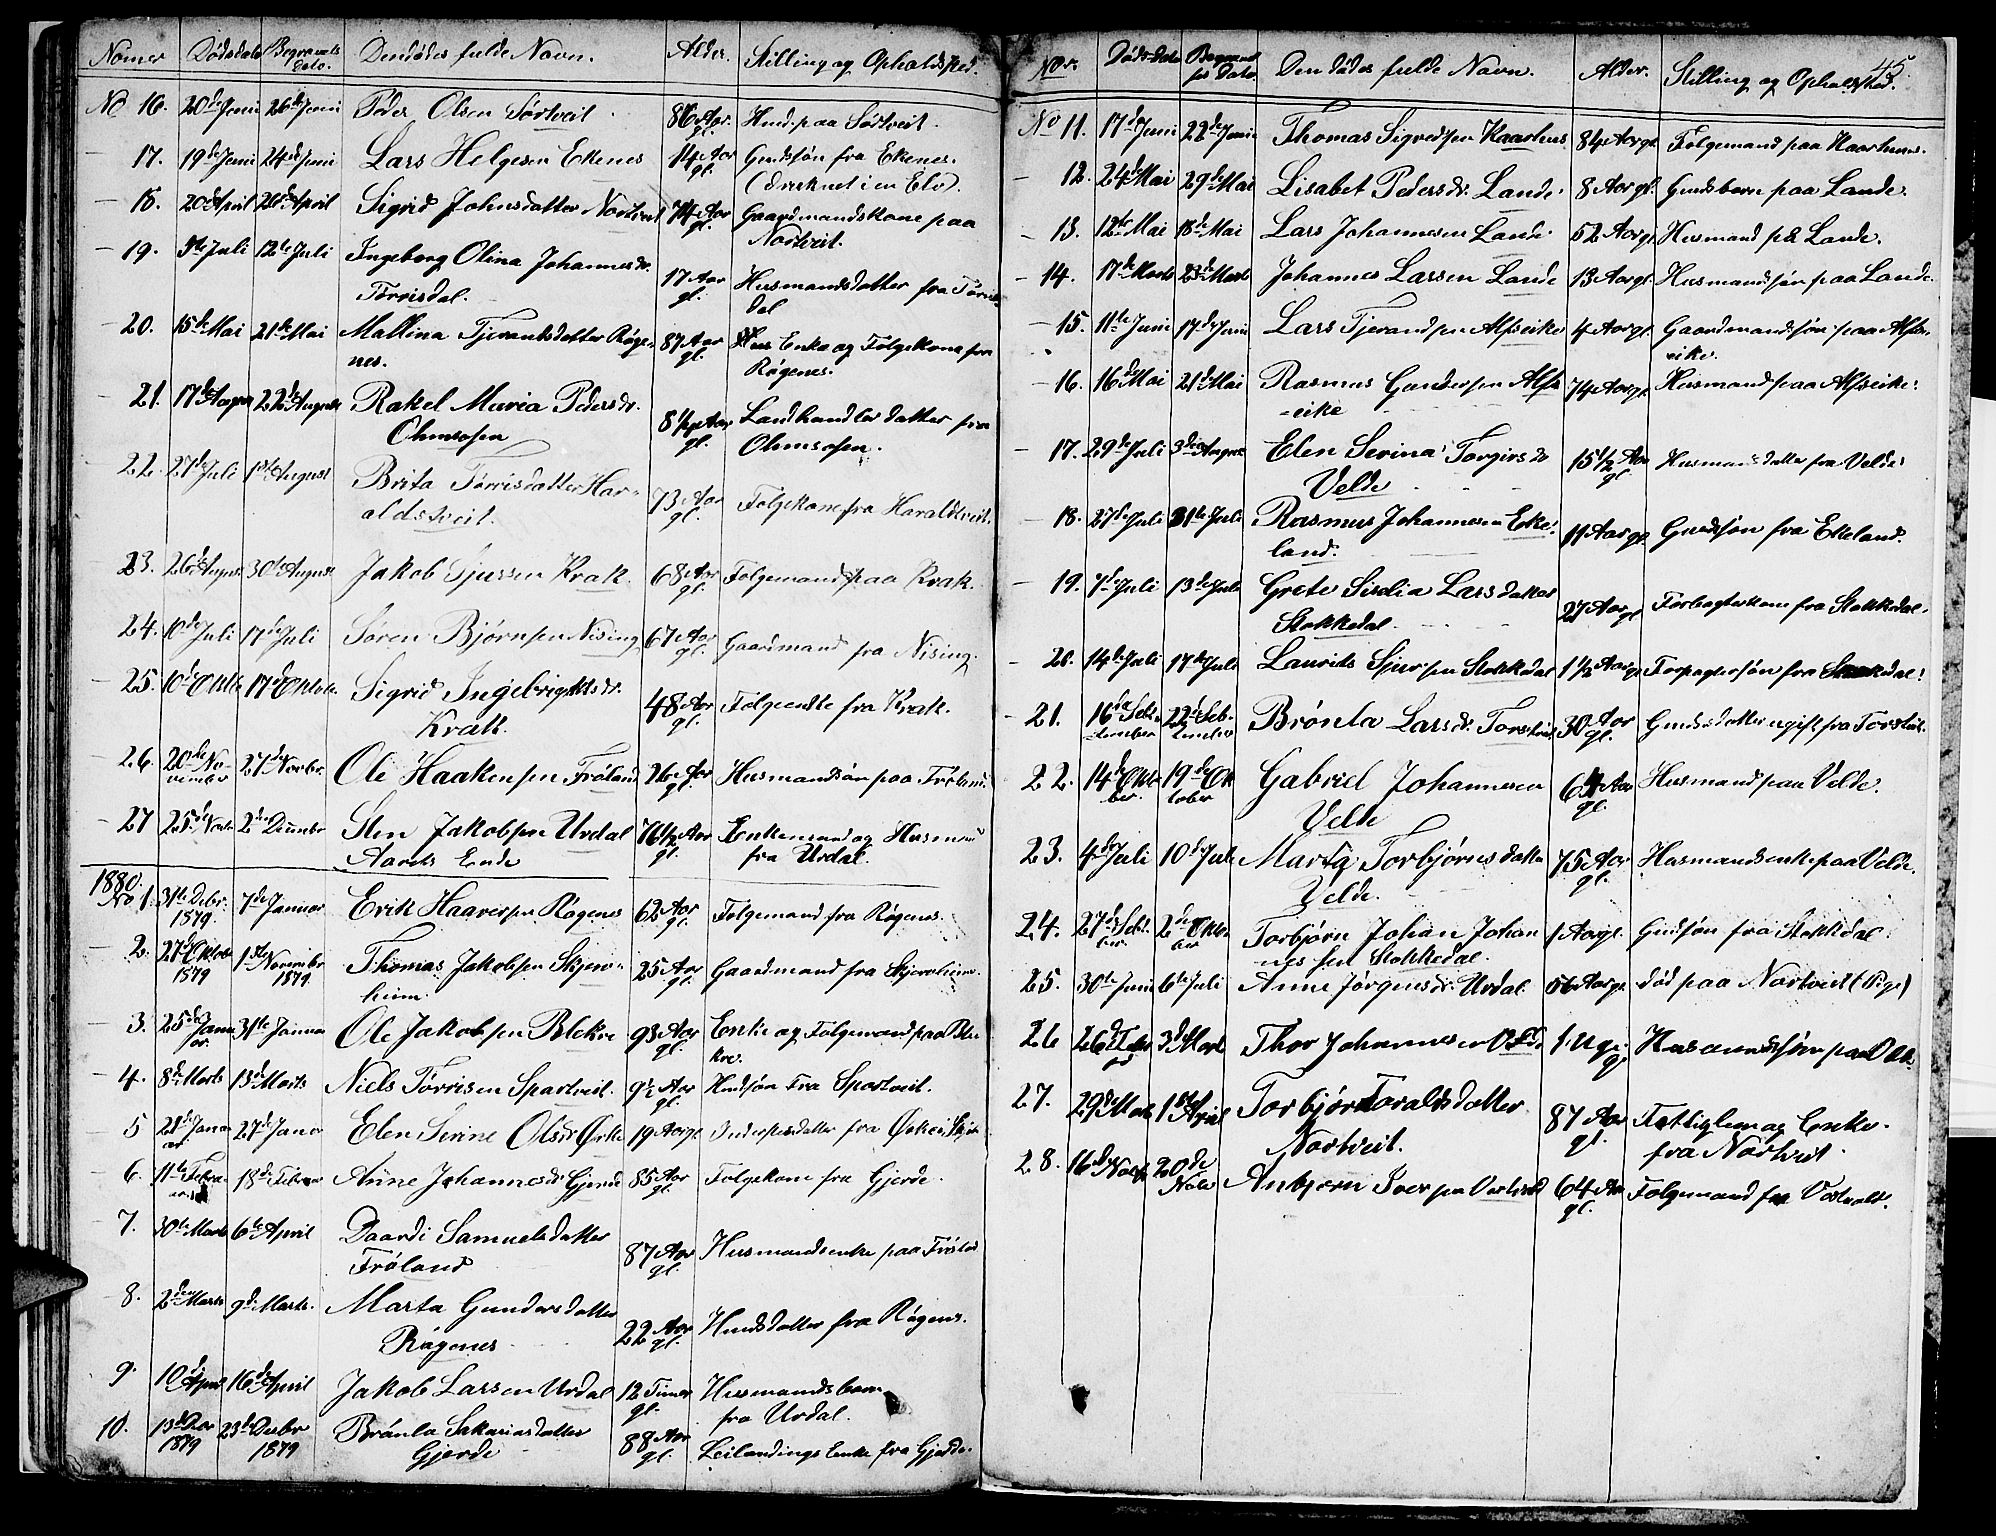 Nomer Dødsdato Begravels dato. Dendødes fulde Navn. Alder. Stilling og Opholdsted.
No 16. 20de Juni 26de Juni Peder Olsen Sørtveit 86 Aar gl. Husd. paa Sørtveit.
— 17. 19de Juni 24de Juni Lars Helgesen Ekenes 14 Aar gl. Gmdsøn fra Ekenes.
(druknet i en Elv).
— 18. 20de April 26de April Sigrid Johnsdatter Nortveit 74 Aar gl. Gaardmandskone paa
Nortveit.
— 19. 5te Juli 12te Juli Ingeborg Olina Johannesdr.
Tørrisdal. 17 Aar gl. Husmandsdatter fra Tørris-
dal
— 20. 15de Mai 21de Mai Mallina Tjerantsdatter Røge-
nes. 87 Aar gl. Enke og Følgekone fra
Røgenes.
— 21. 17de August 22de August Rakel Maria Pedersdr.
Ohmsosen 8 1/2 Aar gl. Landhandler datter fra
Olmsosen.
— 22. 27de Juli 1ste August Brita Tørrisdatter Har-
aldstveit. 73 Aar gl. Følgekone fra Haraldtveit.
23. 26de August 30te August Jakob Sjursen Krak. 68 Aar gl. Følgemand paa Krak.
— 24. 10de Juli 17de Juli Søren Bjørnsen Nising 67 Aar gl. Gaardmand fra Nising.
— 25. 10de Oktb. 17de Oktob. Sigrid Ingebrigtsdr.
Krakk. 48 Aar gl. Følgeenke fra Krak.
— 26. 20de No-
vember 27de Novbr. Ole Haakensen Frøland 26 Aar gl. Husmandsøn paa Frøland.
— 27 25de Novb. 2den Decmbr Sten Jakobsen Urdal 76 1/2 Aar gl. Enkemand og Husmand
Aarets Ende fra Urdal.
1880.
No 1. 31te Debr. 1879. 7de Januar Erik Haaversen Røgenes 62 Aar gl. Følgemand fra Røgenes.
— 2. 27de Oktob 1879 1ste Novembr 1879. Thomas Jakobsen Skjerv-
heim. 25 Aar gl. Gaardmand fra Skjervheim.
— 3. 25de Janu
ar. 31te Januar Ole Jakobsen Blekre 93 Aar gl. Enke og Følgemand paa Ble-
kre.
— 4. 8de Marts 13de Marts Niels Tørrisen Spartveit. 9 1/2 Aar gl. Husdsøn fra Sportveit.
— 5 21de Janu
ar 27de Janu Elen Serine Olsdr Ørke 19 Aar gl.
— 6. 11te Febru
ar. 18de Februar Anne Johannesdr Gjerde 85 Aar gl. Følgekone fra Gjerde.
— 7. 30te Marts 6te April Daardi Samuelsdatter
Frøland 87 Aar gl. Husmandsenke paa Frøland
— 8. 2den Marts 9de Marts. Marta Gundersdatter
Røgenes 22 Aar gl. Husdsdatter fra Røgens.
9. 10de April 16de April Jakob Larsen Urdal 12 Timer gl. Husmandsbarn
fra Urdal.
10. 13de 1879 23de Decbr 1879 Brønla Sakariasdatter
Gjerde 88 Aar gl. Leilendings Enke fra Gjerde.
45.
No. Dødsdato Begravel ses Dato Den dødes fulde Navn. Alder. Stilling og Opholdsted.
No 11. 17de Juni 22de Juni Thomas Sigvedsen Kaarhus 84 Aar gl. Følgemand paa Kaarhuus.
— 12. 24de Mai 29de Mai Lisabet Pedersdr. Lande 8 Aar gl. Gmdsbarn paa Lande.
— 13. 12te Mai 18de Mai Lars Johannesen Lande 52 Aar gl. Husmand på Lande.
— 14. 17de Marts 23de Marts Johannes Larsen Lande 13 Aar gl. Husmandsøn paa Lande.
— 15. 11te Juni 17de Juni Lars Tjerandsen Alfseike 4 Aar gl. Gaardmandsøn paa Alfs-
eike.
— 16. 16de Mai 21de Mai Rasmus Gundersen Alfs
-eike 74 Aar gl. Husmand paa Alfseike.
— 17. 29de Juli 3die August Elen Serina Torgirsdr
Velde 15 1/2 Aar gl. Husmansdatter fra Velde.
— 18. 27de Juli 31te Juli Rasmus Johannesen Eke-
land. 11 Aar gl. Gmdsøn fra Ekeland.
— 19. 7de Juli 13de Juli Grete Sisilia Larsdatter
Stokkedal 27 Aar gl. Forpagterkone fra Stokkedal.
— 20. 14de Juli 17de Juli Laurids Sjursen Stokkedal 1 1/2 Aar gl. Forpagtersøn fra Stokkedal.
— 21. 16de Sep-
tember 22de Sep-
tember Brønla Larsdr. Torstveit 30 Aar gl. Gmdsdatter ugift fra Torstveit.
22. 14de Okto
ber. 19de Ok
tober Gabriel Johannesen
Velde 64 Aar gl. Husmand paa Velde.
23. 4de Juli 10de Juli Marta Torbjørnsdatter
Velde. 75 Aar gl. Husmandsenke paa Velde.
24. 27de Sept.
ber. 2den Okto
ber Torbjørn Johan Johan
nes sen Stokkedal. 1 Aar gl. Gmdsøn fra Stokkedal.
25. 30te Juni 6te Juli Anne Jørgensdr. Urdal 56 Aar gl. død paa Nortveit (Pige)
26 26de 3de Marts Thor Johannesen 1 Uge g. Husmandssøn paa
27. 29de Marts 1ste April Torbjør Toraldsdatter
Nortveit. 87 Aar gl. Fattiglem og Enke.
fra Nortveit.
28. 16de Novb 20de
Novb Anbjørn Iversen 64 Aar gl. Følgemand fra